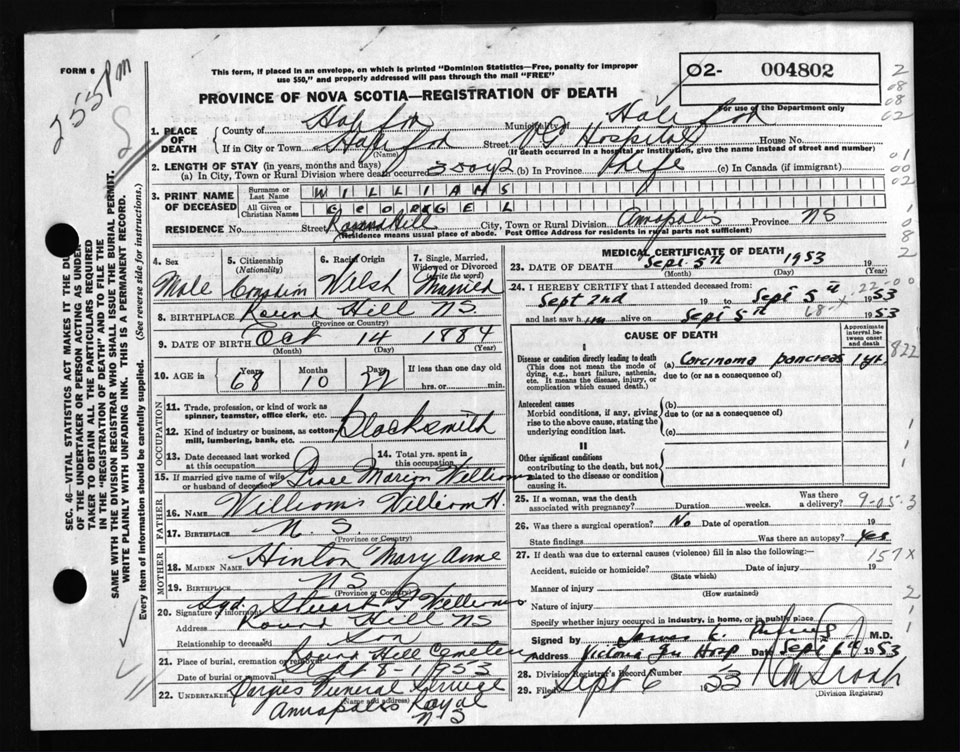 FORM 6
255 PM
This form, if placed in an envelope, on which is printed "Dominion Statistics—Free, penalty for improper
use $50," and properly addressed will pass through the mail "FREE"
PROVINCE OF NOVA SCOTIA—REGISTRATION OF DEATH
02- 004802
For use of the Department only
1. PLACE OF DEATH
County of Halifax Municipality of Halifax
If in City or Town Halifax (Name) Street VG Hospital House No.
(If death occurred in a hospital or institution, give the name instead of street and number)
2. LENGTH OF STAY (in years, months and days)
(a) In City, Town or Rural Division where death occurred 3 days (b) In Province life (c) In Canada (if immigrant)
3. PRINT NAME OF DECEASED
Surname or Last Name WILLIAMS
All Given or Christian Names GEORGE L
RESIDENCE No. Street Round Hill City, Town or Rural Division Annapolis Province NS
(Residence means usual place of abode. Post Office Address for residents in rural parts not sufficient)
4. Sex Male
5. Citizenship (Nationality) Canadian
6. Racial Origin Welsh
7. Single, Married, Widowed or Divorced (write the word) Married
8. BIRTHPLACE Round Hill NS.
(Province or Country)
9. DATE OF BIRTH Oct 14 1884
(Month) (Day) (Year)
10. AGE in Years 68 Months 10 Days 22 If less than one day old
hrs. or min.
OCCUPATION
11. Trade, profession, or kind of work as spinner, teamster, office clerk, etc.
12. Kind of industry or business, as cotton-mill, lumbering, bank, etc.
Blacksmith
13. Date deceased last worked at this occupation
14. Total yrs. spent in this occupation
15. If married give name of wife or husband of deceased Grace Marion Williams
FATHER
16. NAME Williams William H.
17. BIRTHPLACE N.S.
(Province or Country)
MOTHER
18. MAIDEN NAME Hinton Mary Anne
19. BIRTHPLACE NS
(Province or Country)
20. Signature of informant Sgd. Stuart Williams
Address Round Hill NS
Relationship to deceased Son
21. Place of burial, cremation or removal Round Hill Cemetery
Date of burial or removal Sept 8 - 1953
22. UNDERTAKER Funeral Service
(Name and address)
Annapolis Royal
NS
MEDICAL CERTIFICATE OF DEATH
23. DATE OF DEATH Sept. 5th 1953
(Month) (Day) (Year)
24. I HEREBY CERTIFY that I attended deceased from:
Sept 2nd 19 to Sept 5th 1953
and last saw him alive on Sept 5th 1953
CAUSE OF DEATH
Approximate interval between onset and death
I
Disease or condition directly leading to death
(This does not mean the mode of dying, e.g., heart failure, asthenia, etc. It means the disease, injury, or complication which caused death.)
(a) Carcinoma pancreas 1 yr.
due to (or as a consequence of)
Antecedent causes
Morbid conditions, if any, giving rise to the above cause, stating the underlying condition last.
(b)
due to (or as a consequence of)
(c)
II
Other significant conditions
contributing to the death, but not related to the disease or condition causing it.
25. If a woman, was the death associated with pregnancy? Duration weeks. Was there a delivery?
26. Was there a surgical operation? No Date of operation 19
State findings Was there an autopsy? Yes
27. If death was due to external causes (violence) fill in also the following:—
Accident, suicide or homicide? Date of injury 19
(State which)
Manner of injury
(How sustained)
Nature of injury
Specify whether injury occurred in industry, in home, or in public place
Signed by James K. M.D.
Address Victoria Gen Hosp Date Sept 6th 1953
28. Division Registrar's Record Number
29. Filed Sept 6 53
(Division Registrar)
2
08
08
02
01
00
02
1
08
2
22-00
68
822
9-05-3
157X
2
SEC. 46—VITAL STATISTICS ACT MAKES IT THE DUTY
OF THE UNDERTAKER OR PERSON ACTING AS UNDERTAKER
TO OBTAIN ALL THE PARTICULARS REQUIRED
IN THE "REGISTRATION OF DEATH" AND TO FILE THE
SAME WITH THE DIVISION REGISTRAR WHO SHALL ISSUE THE BURIAL PERMIT.
WRITE PLAINLY WITH UNFADING INK. THIS IS A PERMANENT RECORD.
Every item of information should be carefully supplied. (See reverse side for instructions.)